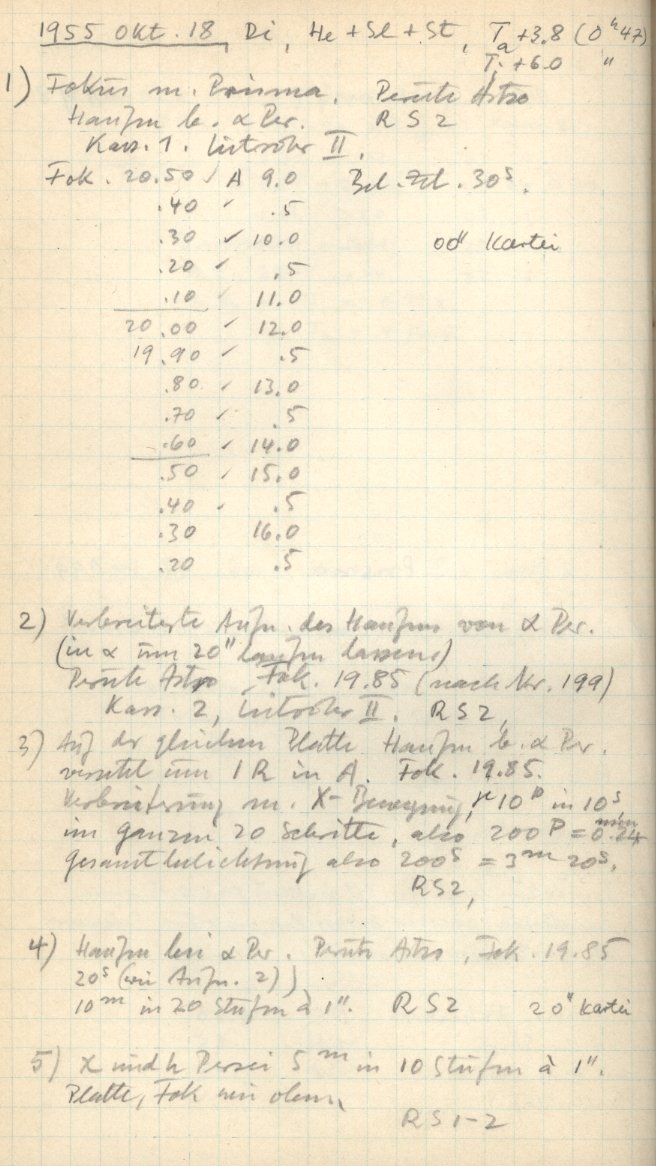 1955 Okt. 18, Di, He + Sl + St, Ta +3.8 (0ʰ47)
Ti +6.0 "
1) Fokus m. Prisma. Perutz Astro
Haufen b. α Per. RS2
Kass. 1. Leitrohr II.
Fok. 20.50 ✓ A 9.0 Bel. Zt. 30ˢ.
.40 ✓ .5
.30 ✓ 10.0 00" Kartei
.20 ✓ .5
.10 ✓ 11.0
20.00 ✓ 12.0
19.90 ✓ .5
.80 ✓ 13.0
.70 ✓ .5
.60 ✓ 14.0
.50 ✓ 15.0
.40 ✓ .5
.30 16.0
.20 .5
2) Verbreiterte Aufn. des Haufens von α Per.
(in α um 20" laufen lassen)
Perutz Astro Fok. 19.85 (nach Nr. 199)
Kass. 2, Leitrohr II. RS2,
3) Auf der gleichen Platte Haufen b. α Per.
versetzt um 1 R in A. Fok. 19.85.
Verbreiterung m. X-Bewegung, 10ᵖ in 10ˢ
im ganzen 20 Schritte, also 200ᵖ = 0.24 mm
Gesamtbelichtung also 200ˢ = 3ᵐ 20ˢ.
RS2,
4) Haufen bei α Per. Perutz Astro, Fok. 19.85
20ˢ (wie Aufn. 2))
10ᵐ in 20 Stufen à 1". RS2 20" Kartei
5) χ und h Persei 5ᵐ in 10 Stufen à 1".
Platte, Fok wie oben.
RS 1-2